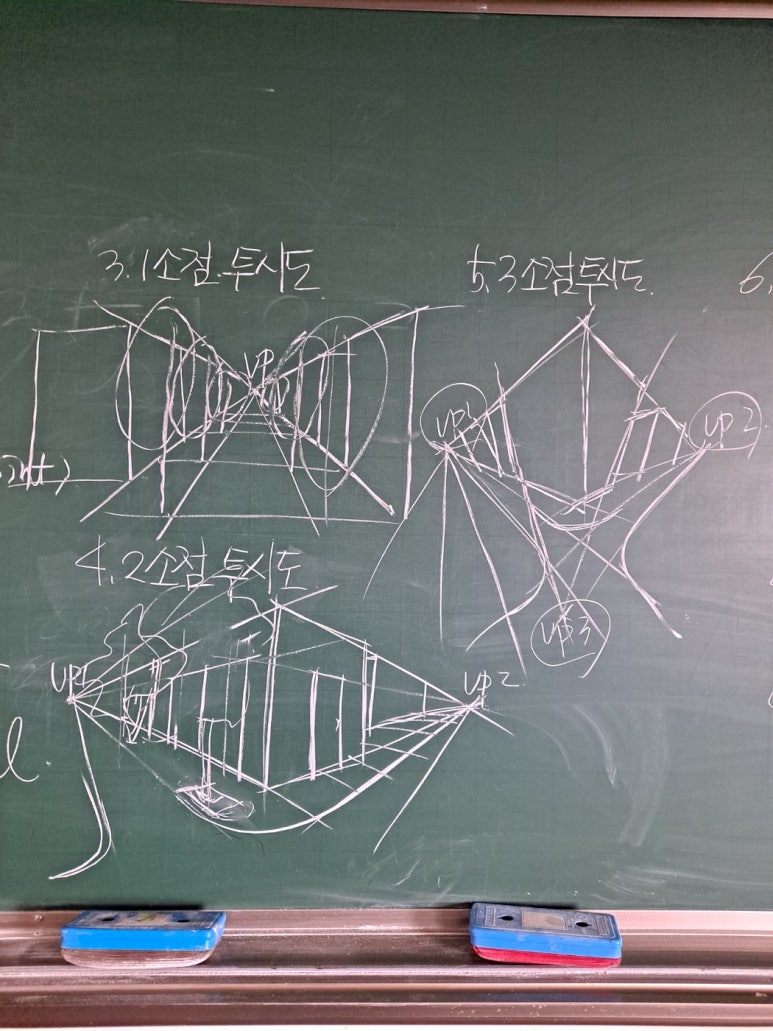 3.1소점.투시도
VP
4,2소점투시도
VP1
VP2
5,3소점투시도.
VP1
VP2
VP3
6,